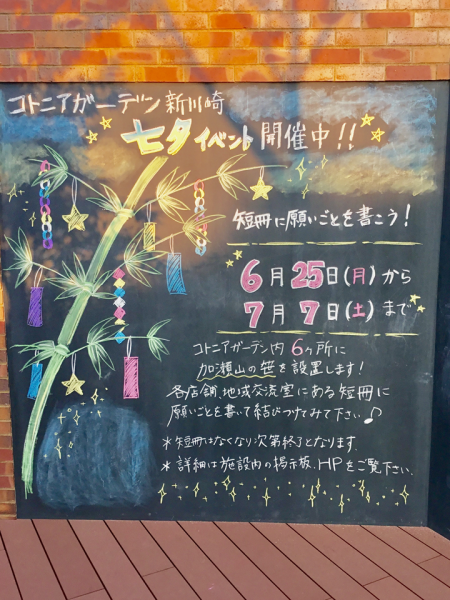 コトニアガーデン新川崎
七夕イベント開催中!!
短冊に願いごとを書こう!
6月25日(月)から
7月7日(土)まで
コトニアガーデン内6ヶ所に
加瀬山の笹を設置します!
各店舗、地域交流室にある短冊に
願いごとを書いて結びつけてみて下さい♪
*短冊はなくなり次第終了となります.
*詳細は施設内の掲示板、HPをご覧下さい.